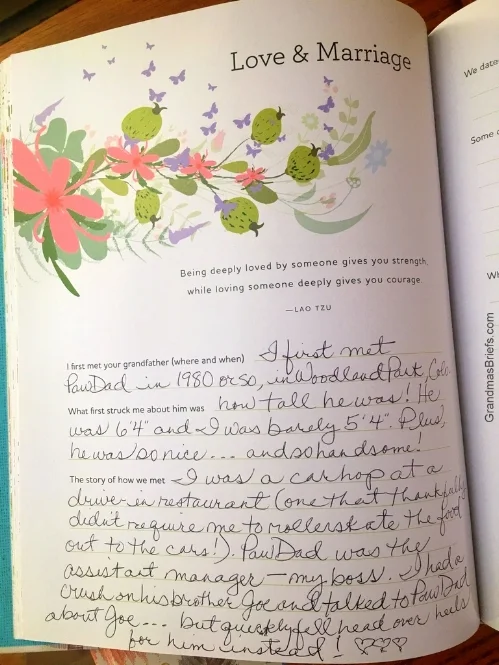 Love & Marriage
Being deeply loved by someone gives you strength,
while loving someone deeply gives you courage.
—LAO TZU
I first met your grandfather (where and when) I first met
PawDad in 1980 or so, in Woodland Park, Colo.
What first struck me about him was how tall he was! He
was 6'4" and I was barely 5'4". Plus,
he was so nice... and so handsome!
The story of how we met I was a carhop at a
drive-in restaurant (one that thankfully
didn't require me to rollerskate the food
out to the cars!). PawDad was the
assistant manager — my boss. I had a
crush on his brother Joe and talked to PawDad
about Joe... but quickly fell head over heels
for him instead! ♡♡♡♡
We date
Some o
Wh
GrandmasBriefs.com